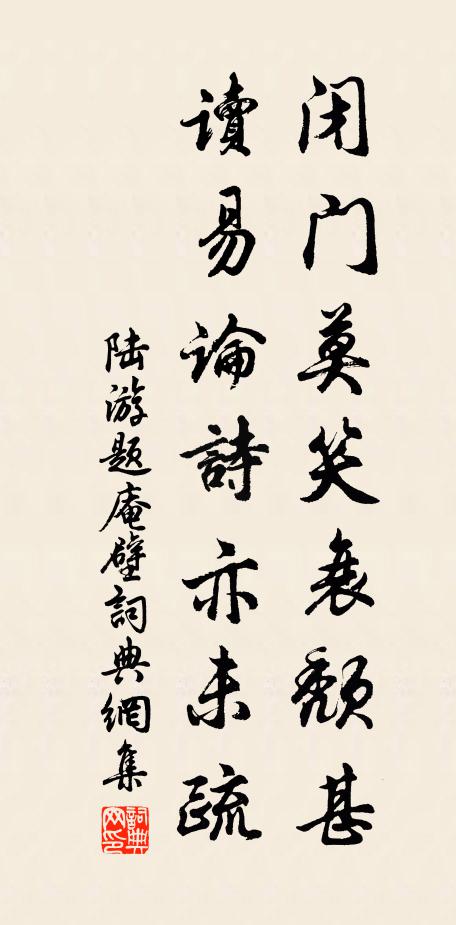 闭门莫笑衰颓甚
读易論詩亦未疏
陆游题庵壁詞典網集
詞典
网印